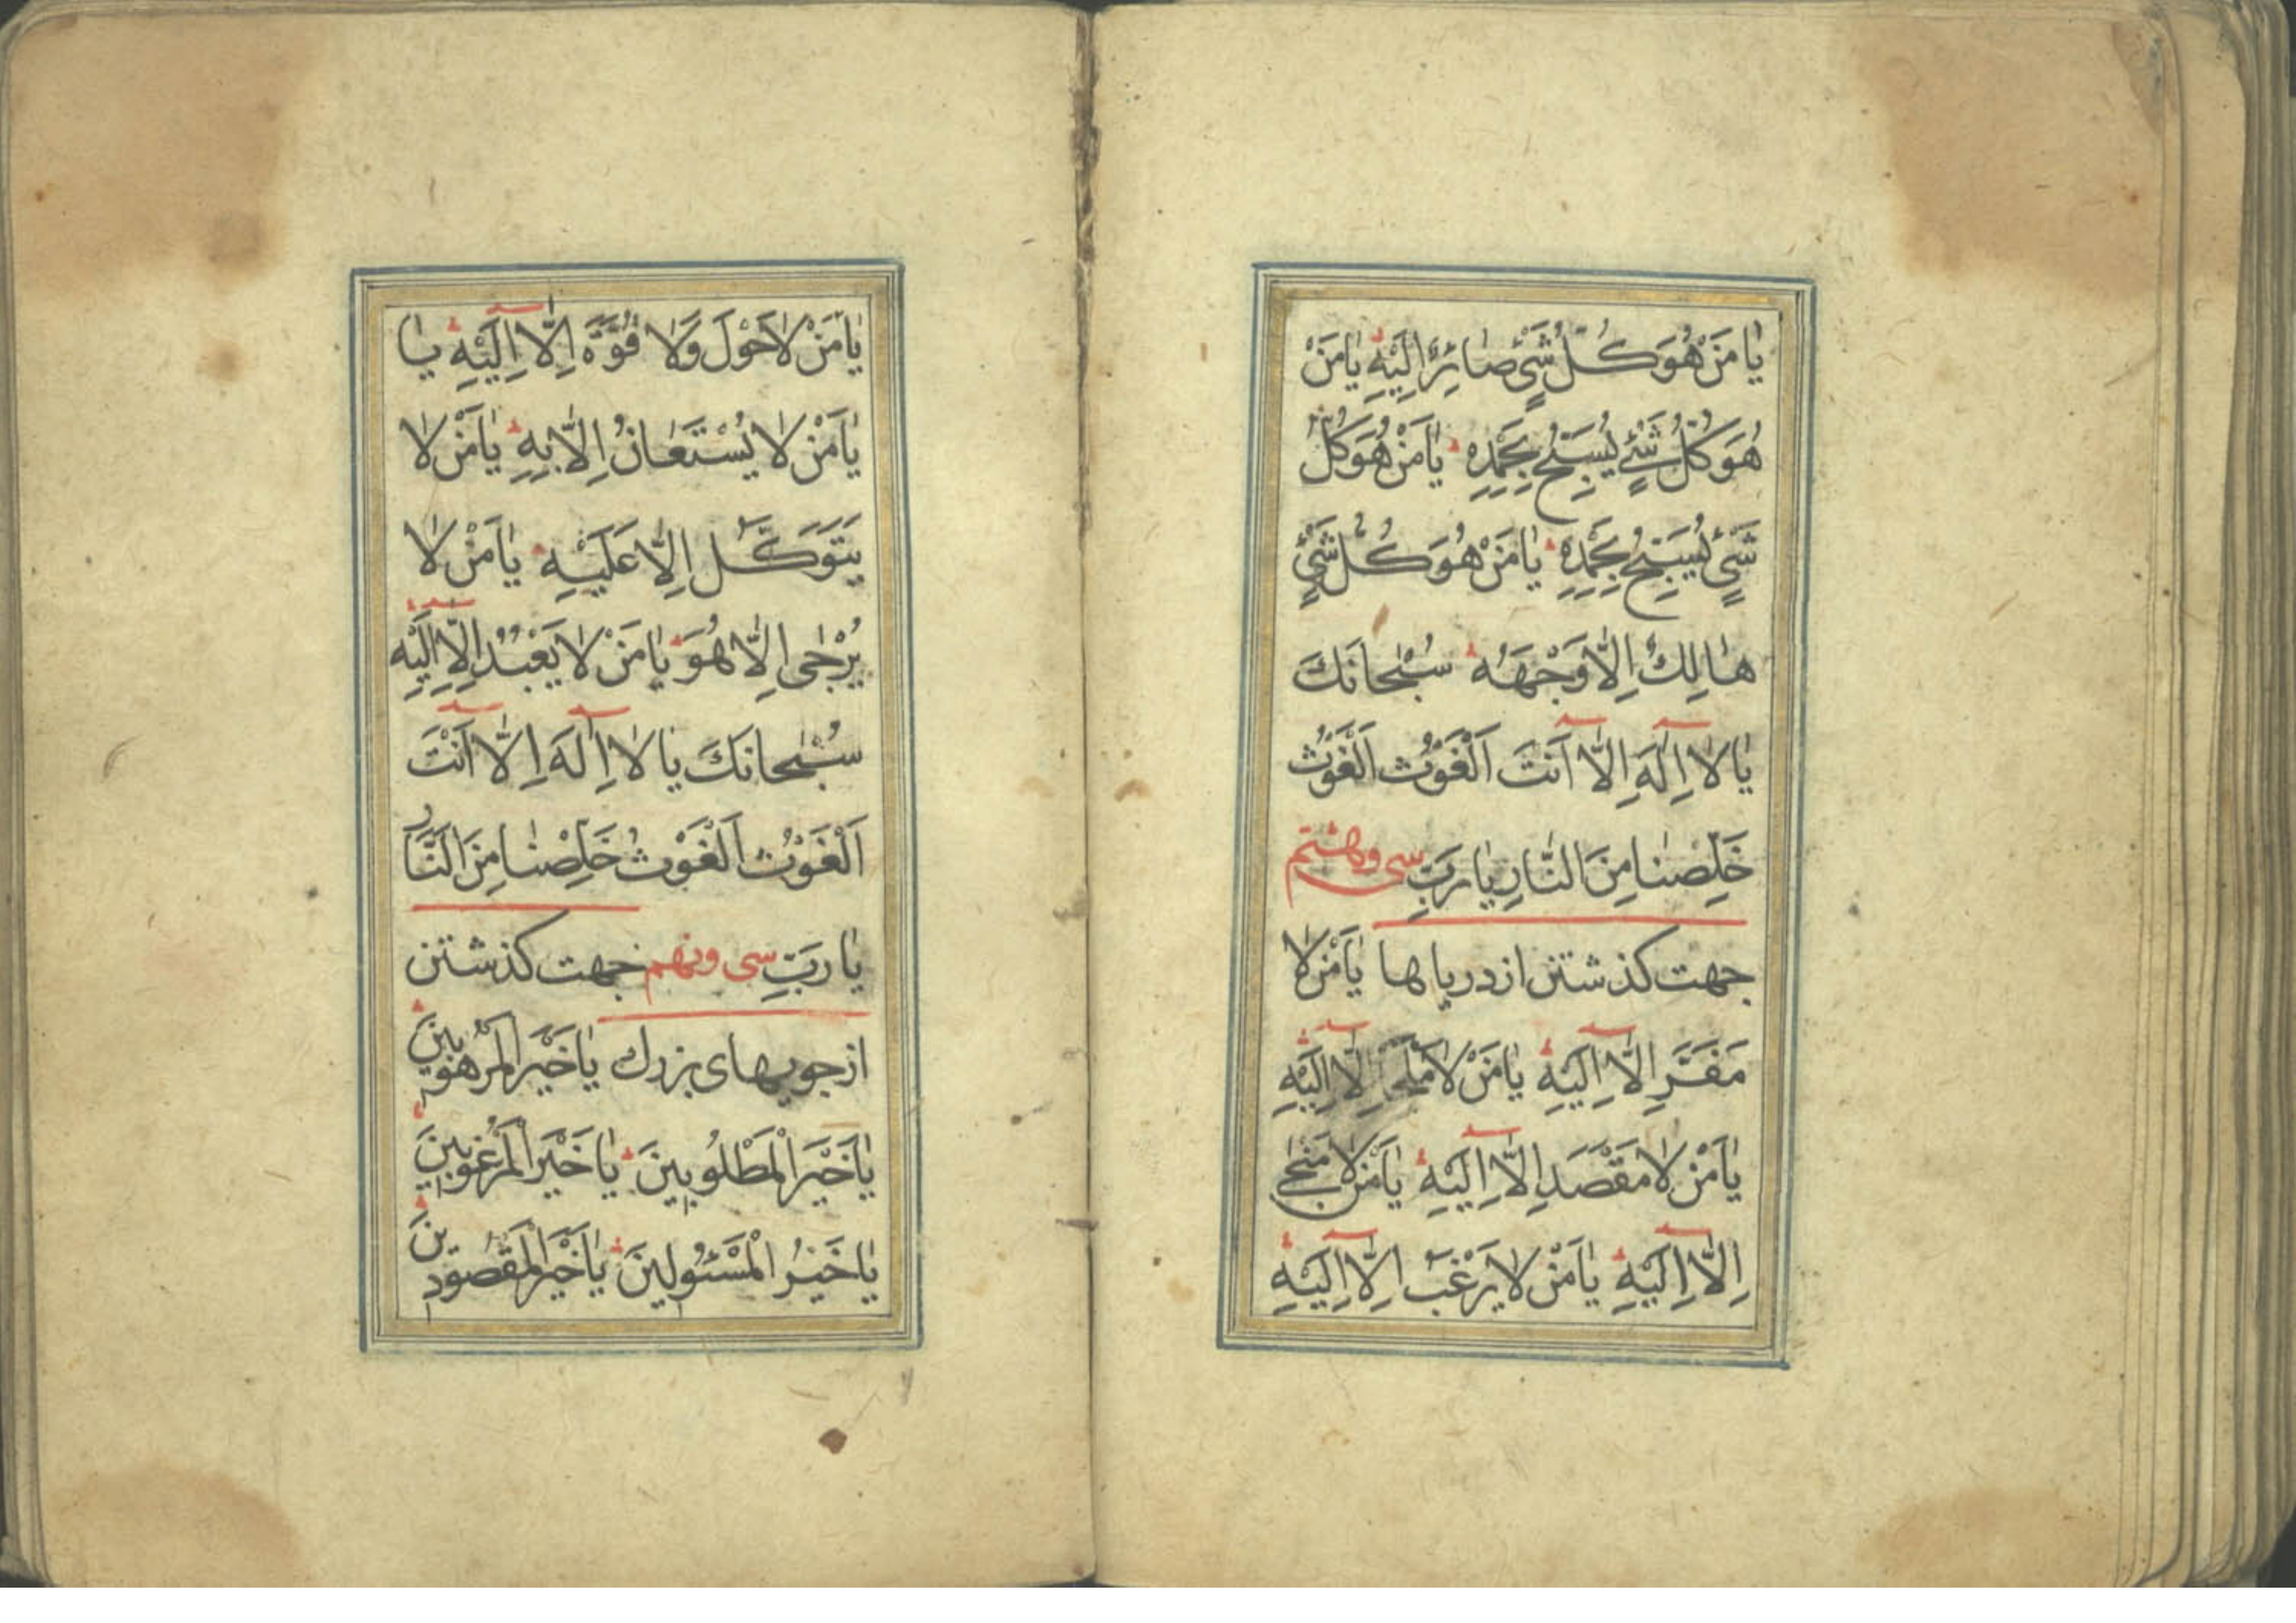 يٰا مَنْ هُوَ كُلُّ شَيْءٍ صٰائِرٌ اِلَيْهِ يٰا مَنْ
هُوَ كُلُّ شَيْءٍ يُسَبِّحُ بِحَمْدِهِ يٰا مَنْ هُوَ كُلُّ
شَيْءٍ يُسَبِّحُ بِحَمْدِهِ يٰا مَنْ هُوَ كُلُّ شَيْءٍ
هٰالِكٌ اِلّٰا وَجْهَهُ سُبْحٰانَكَ
يٰا لٰا اِلٰهَ اِلّٰا اَنْتَ اَلْغَوْثُ اَلْغَوْثُ
خَلِّصْنٰا مِنَ النّٰارِ يٰا رَبِّ سى وهشتم
جهت كذشتن از درياها يٰا مَنْ لٰا
مَفَرَّ اِلّٰا اِلَيْهِ يٰا مَنْ لٰا مَلْجَأَ اِلّٰا اِلَيْهِ
يٰا مَنْ لٰا مَقْصَدَ اِلّٰا اِلَيْهِ يٰا مَنْ لٰا مَنْجٰى
اِلّٰا اِلَيْهِ يٰا مَنْ لٰا يَرْغَبُ اِلّٰا اِلَيْهِ
يٰا مَنْ لٰا حَوْلَ وَلٰا قُوَّةَ اِلّٰا اِلَيْهِ يا
يٰا مَنْ لٰا يُسْتَعٰانُ اِلّٰا بِهِ يٰا مَنْ لٰا
يَتَوَكَّلُ اِلّٰا عَلَيْهِ يٰا مَنْ لٰا
يُرْجٰى اِلّٰا هُوَ يٰا مَنْ لٰا يَعْبُدُ اِلّٰا اِلَيْهِ
سُبْحٰانَكَ يٰا لٰا اِلٰهَ اِلّٰا اَنْتَ
اَلْغَوْثُ اَلْغَوْثُ خَلِّصْنٰا مِنَ النَّارِ
يٰا رَبِّ سى ونهم جهت كذشتن
از جويهاى بزرك يٰا خَيْرَ الْمَرْهُوبِينَ
يٰا خَيْرَ الْمَطْلُوبِينَ يٰا خَيْرَ الْمَرْغُوبِينَ
يٰا خَيْرَ الْمَسْئُولِينَ يٰا خَيْرَ الْمَقْصُودِينَ